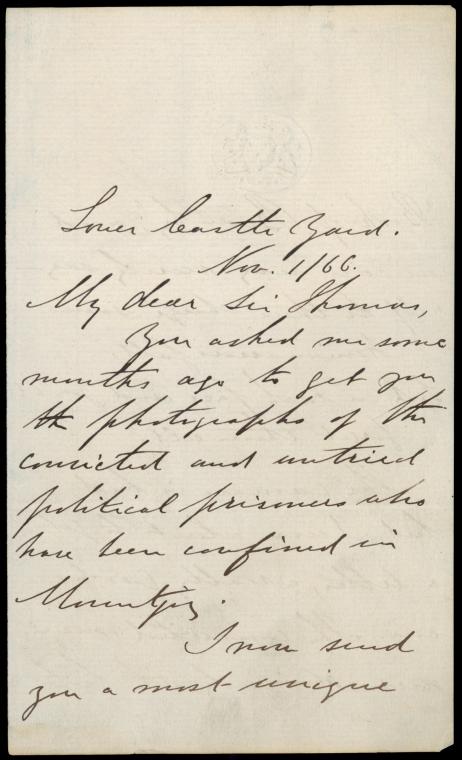 Lower Castle Yard.
Nov. 1/66.
My dear Sir Thomas,
You asked me some
months ago to get you
the photographs of the
convicted and untried
political prisoners who
have been confined in
Mountjoy.
I now send
you a most unique